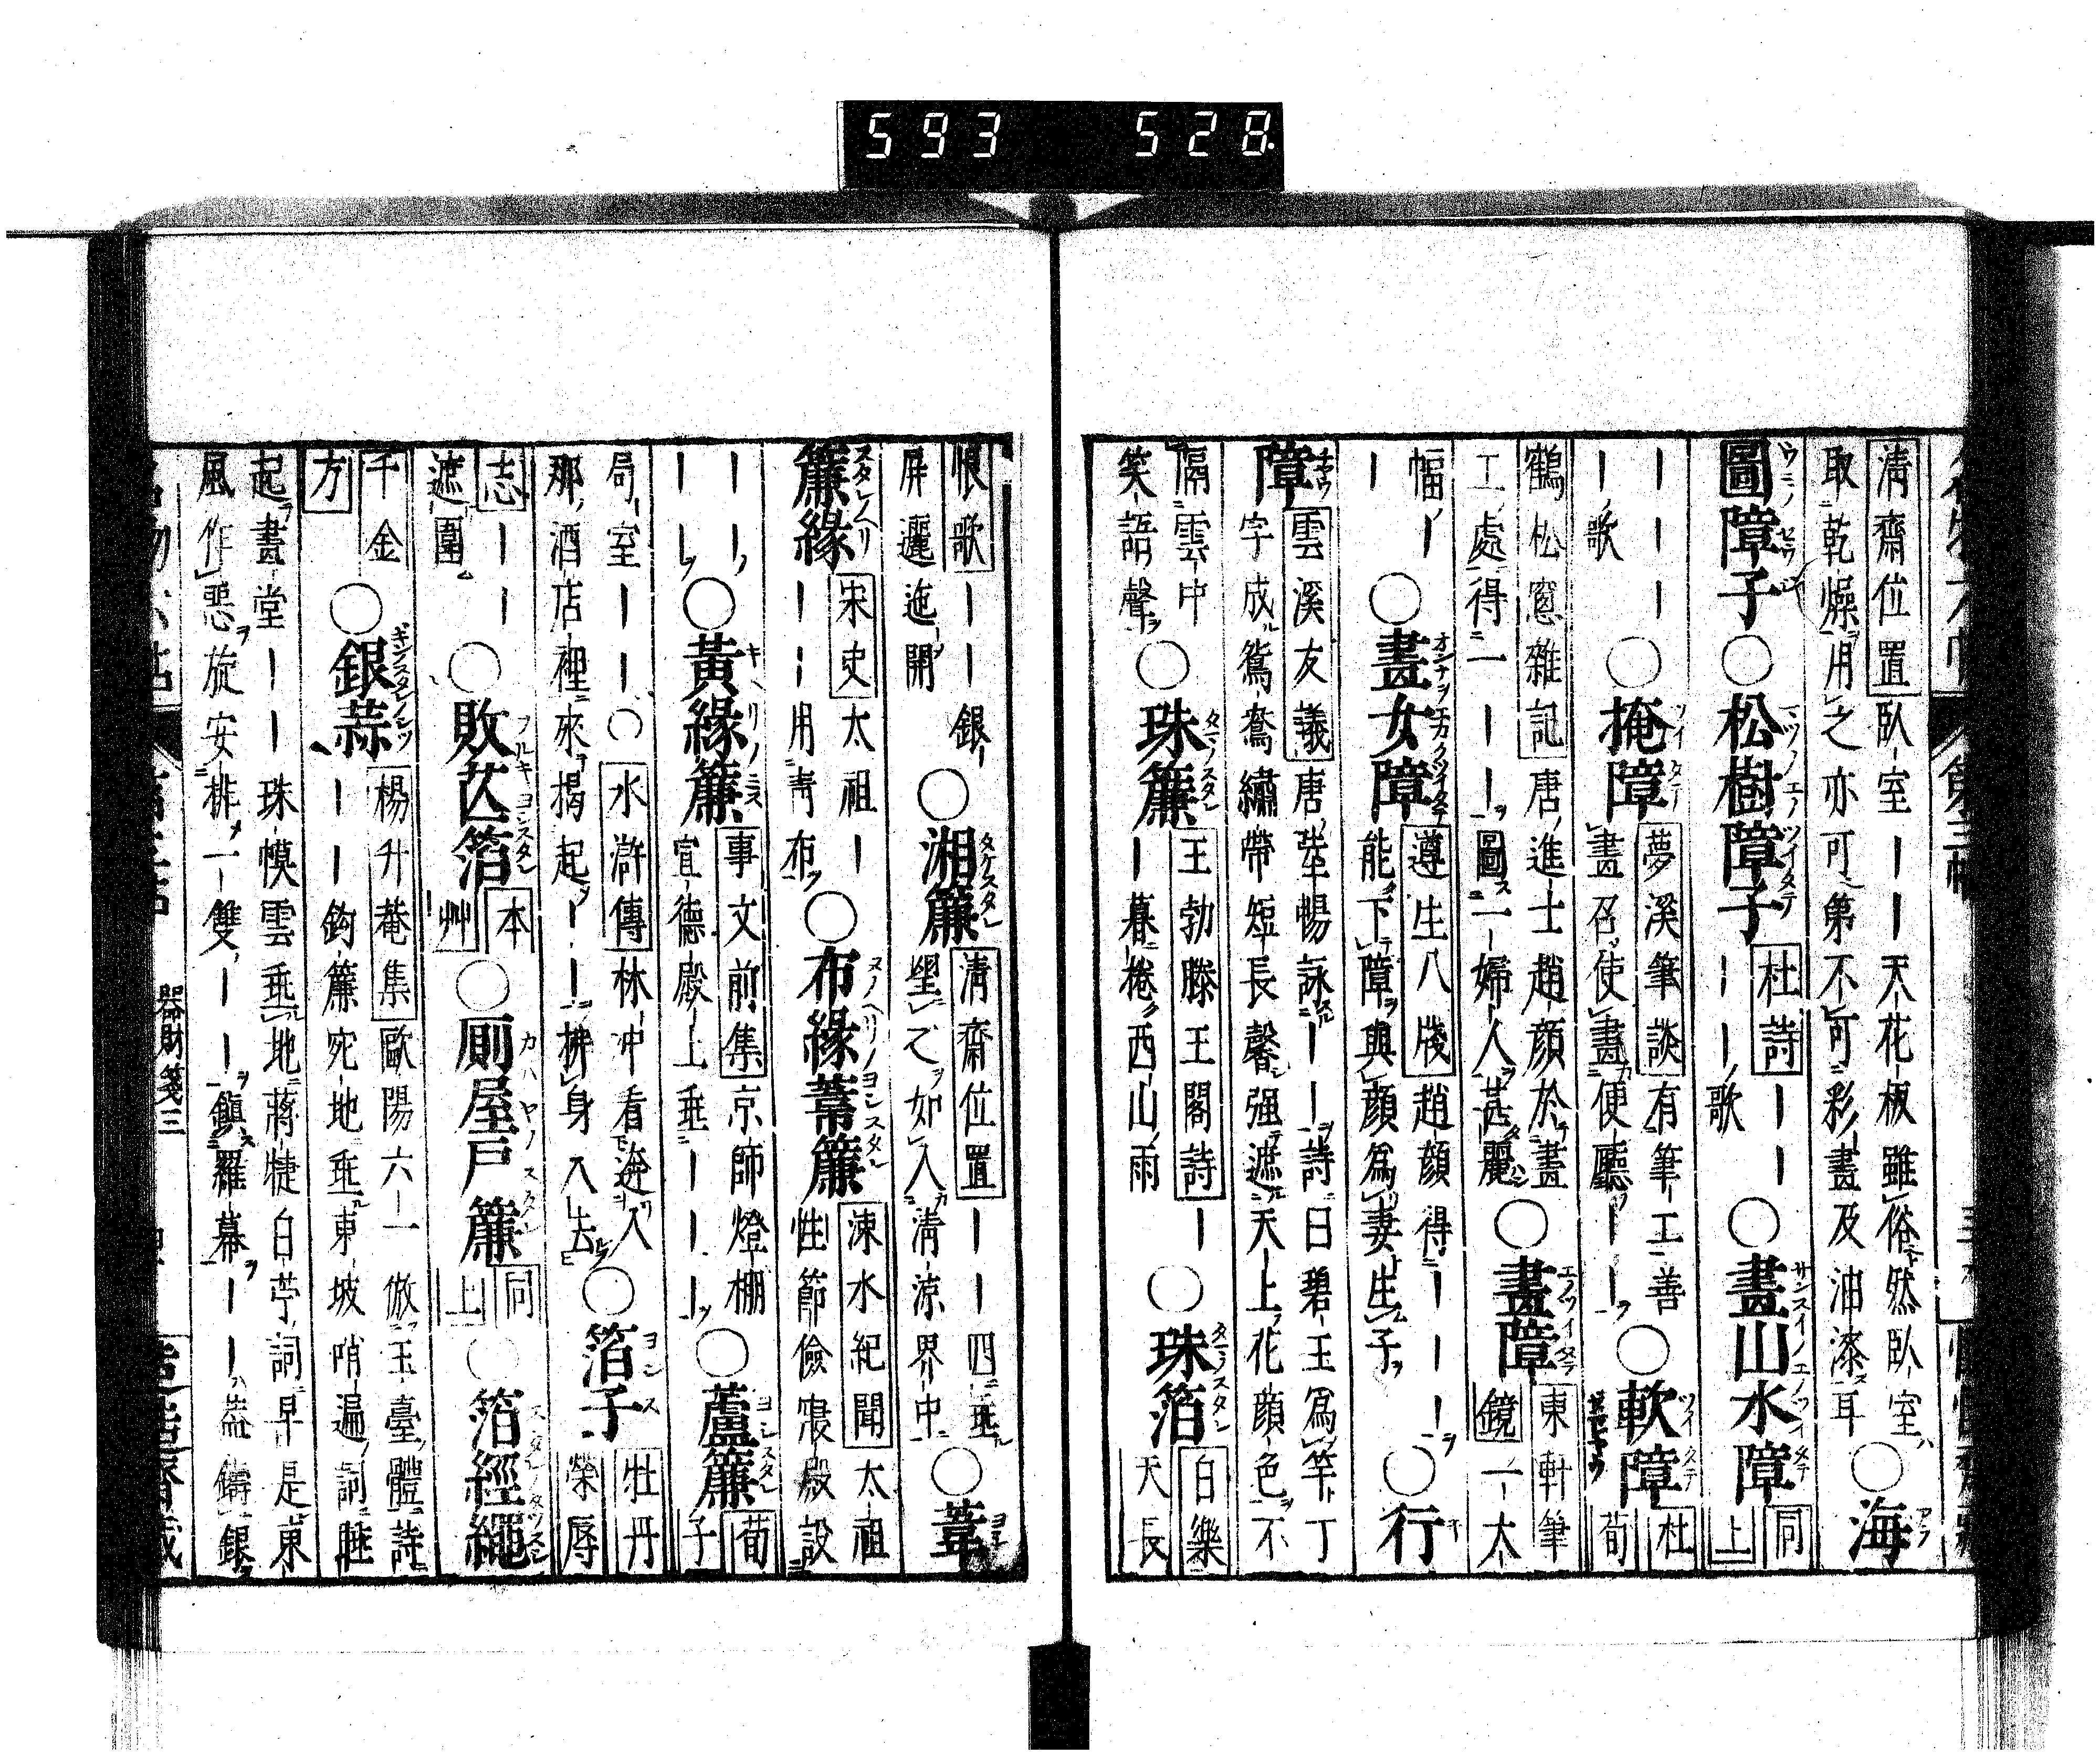 593 528
清齋位置 臥室｜｜天花板雖俗然臥室
取乾燥用之亦可第不可彩畫及油漆耳 ○海
圖障子 ○松樹障子 杜詩｜｜｜｜歌 ○畫山水障 同上
｜｜｜｜歌 ○掩障 夢溪筆談 有筆工善畫召使畫便廳｜｜ ○軟障 杜荀
鶴松窓雜記 唐進士趙顔於畫工處得一｜｜圖一婦人甚麗 ○畫障 東軒筆 鏡一太
幅｜｜ ○畫女障 遵生八牋 趙顔得｜｜｜能下障與顔爲妻生子 ○行
障 雲溪友議 唐 暢詠｜｜詩曰碧玉爲竿丁
字成鴛鴦繡帶短長馨强遮天上花顔色不
隔雲中笑語聲 ○珠簾 王勃滕王閣詩｜｜暮捲西山雨 ○珠箔 白樂天長
恨歌｜｜銀屏邐迤開 ○湘簾 清齋位置｜｜四垂望之如入清涼界中 ○葦
簾緣 宋史 太祖｜｜｜用青布 ○布緣葦簾 涑水紀聞 太祖性節儉寢殿設
｜｜｜｜ ○黃緣簾 事文前集 京師燈棚宣德殿上垂｜｜｜ ○蘆簾 荀子
局室｜｜○水滸傳 林冲看 入那酒店裡來揭起｜｜拂身入去 ○箔子 牡丹榮辱
志｜｜｜遮圍 ○敗苫箔 本艸 ○厠屋戸簾 同上 ○箔經繩
千金方 ○銀蒜 楊升菴集 歐陽六一倣玉臺體詩
｜｜鉤簾宛地垂東坡哨遍詞睡
起畫堂｜｜珠幙雲垂地蔣捷白苧詞早是東
風作惡旋安排一雙｜｜鎮羅幕｜｜蓋鑄銀
器財箋三